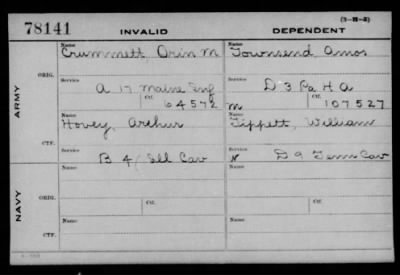 (3-18-2)
78141 INVALID DEPENDENT
Name Name
Crummett, Orin M Townsend, Amos
ORIG. Service Service
A 17 Maine Inf D 3 Pa H A
Ctf. 64572 Ctf. 107527
ARMY Name Name
Hovey, Arthur Tippett, William
CTF. Service Service
B 4 Ill Cav D 9 Tenn Cav
Name Name
ORIG. Ctf. Ctf.
NAVY Name Name
CTF.